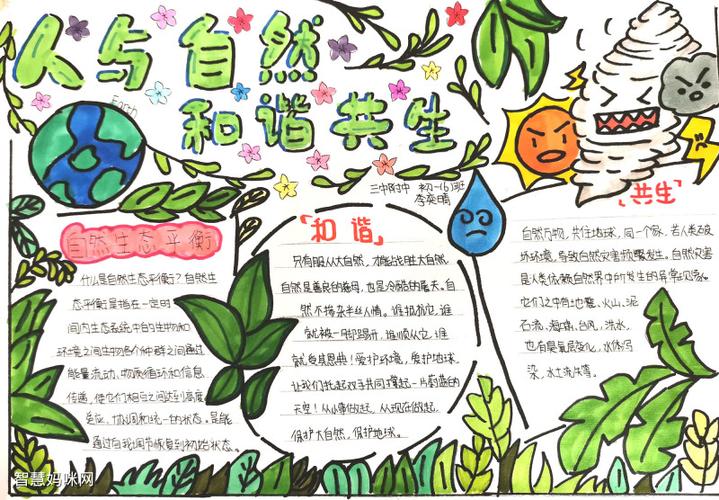 人与自然
和谐共生
Earth
三中附中 初一(6)班
李奕晴
自然生态平衡
什么是自然生态平衡?自然生
态平衡是指在一定时
间内生态系统中的生物和
环境之间生物各个种群之间通过
能量流动、物质循环和信息
传递,使它们相互之间达到高度
适应、协调和统一的状态。是能
通过自我调节恢复到初始状态。
「和谐」
只有服从大自然,才能战胜大自然
自然是善良的慈母,也是冷酷的屠夫。自
然不掺杂半丝人情。谁抗拒它,谁
就被一脚踢开,谁顺从它,谁
就受其恩典!爱护环境,爱护地球。
让我们托起双手共同撑起一片蔚蓝的
天空!从小事做起,从现在做起,
保护大自然,保护地球。
「共生」
自然万物,共住地球,同一个家,若人类破
坏环境,导致自然灾害频繁发生。自然灾害
是人类依赖自然界中所发生的异常现象。
它们之中有:地震、火山、泥
石流、海啸、台风、洪水,
也有臭氧层变化、水体污
染,水土流失等。
智慧妈咪网